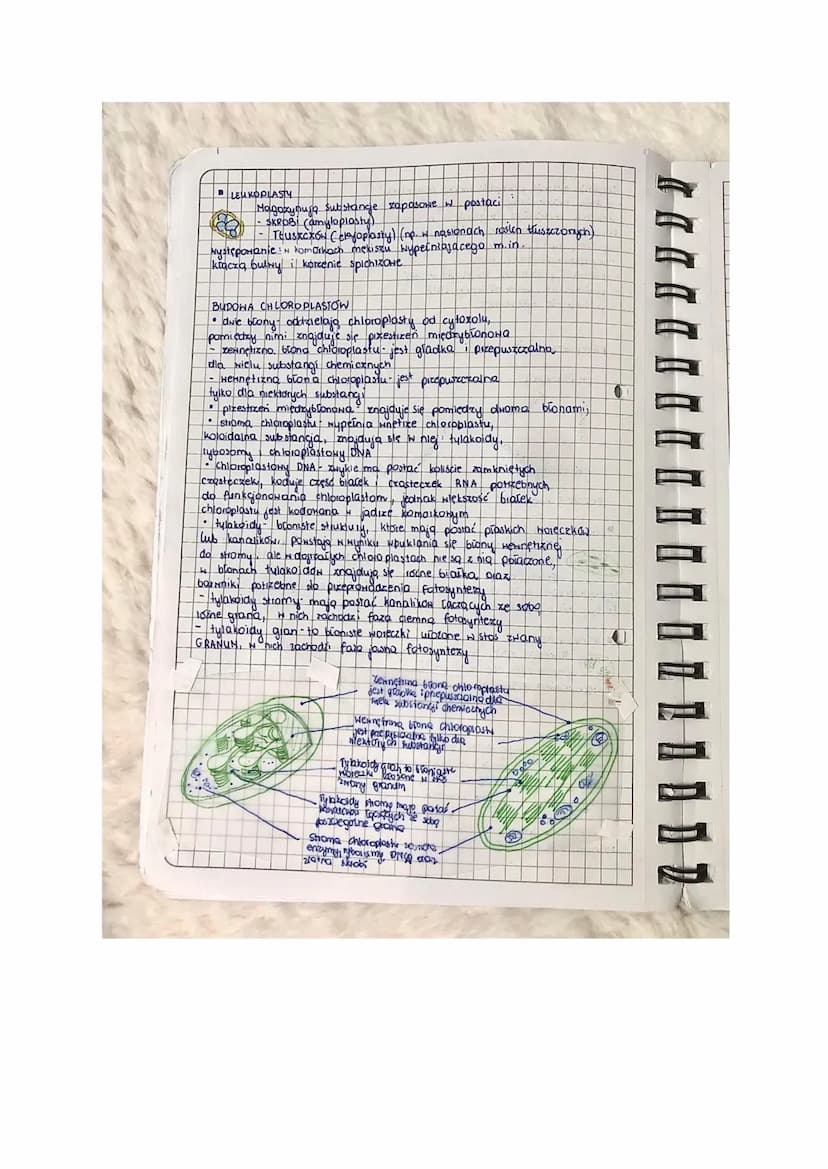 ▪ LEUKOPLASTY
Magazynują substancje zapasowe w postaci:
- SKROBI (amyloplasty)
- TŁUSZCZÓW (elajoplasty) (np. w nasionach roślin tłuszczowych)
Występowanie: w komórkach miękiszu wypełniającego m.in.
kłącza, bulwy i korzenie spichrzowe
BUDOWA CHLOROPLASTÓW
• dwie błony - oddzielają chloroplasty od cytozolu,
pomiędzy nimi znajduje się przestrzeń międzybłonowa
- zewnętrzna błona chloroplastu - jest gładka i przepuszczalna
dla wielu substancji chemicznych
- wewnętrzna błona chloroplastu - jest przepuszczalna
tylko dla niektórych substancji
• przestrzeń międzybłonowa - znajduje się pomiędzy dwoma błonami;
• stroma chloroplastu - wypełnia wnętrze chloroplastu,
koloidalna substancja, znajdują się w niej: tylakoidy,
rybosomy i chloroplastowy DNA
• chloroplastowy DNA - zwykle ma postać koliście zamkniętych
cząsteczek, koduje część białek i cząsteczek RNA potrzebnych
do funkcjonowania chloroplastom, jednak większość białek
chloroplastu jest kodowana w jądrze komórkowym
• tylakoidy - błoniste struktury, które mają postać płaskich woreczków
lub kanalików, powstają w wyniku wpuklania się błony wewnętrznej
do stromy, ale w dojrzałych chloroplastach nie są z nią połączone,
w błonach tylakoidów znajdują się różne białka oraz
barwniki potrzebne do przeprowadzenia fotosyntezy
- tylakoidy stromy - mają postać kanalików łączących ze sobą
różne grana, w nich zachodzi faza ciemna fotosyntezy
- tylakoidy gran - to błoniste woreczki ułożone w stos zwany
GRANUM, w nich zachodzi faza jasna fotosyntezy
zewnętrzna błona chloroplastu
jest gładka i przepuszczalna dla
wielu substancji chemicznych
wewnętrzna błona chloroplastu
jest przepuszczalna tylko dla
niektórych substancji
Tylakoidy gran to błoniaste
woreczki ułożone w stos
zwany granum
Tylakoidy stromy mają postać
kanalików łączących ze sobą
poszczególne grana
Stroma chloroplastu zawiera
enzymy, rybosomy, DNA oraz
ziarna skrobi